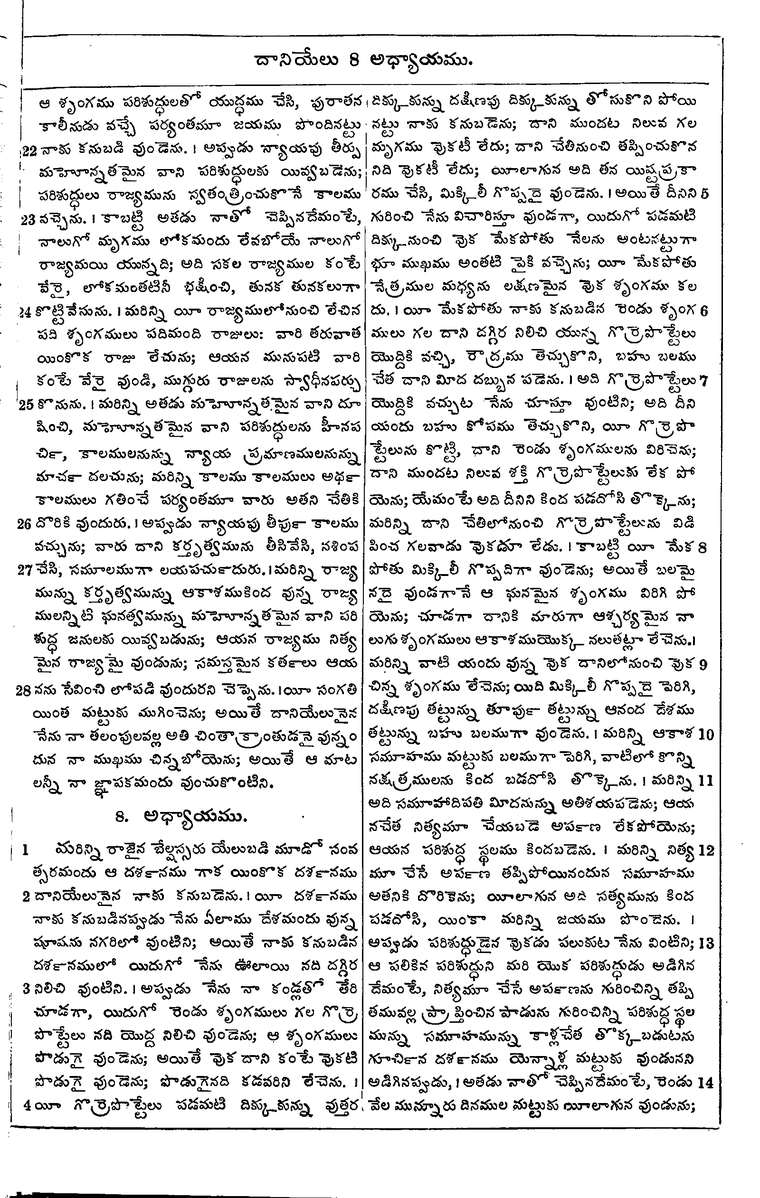 దానియేలు 8 అధ్యాయము.
ఆ శృంగము పరిశుద్ధులతో యుద్ధము చేసి, పురాతన
కాలీనుడు వచ్చే పర్యంతమూ జయము పొందినట్టు
22 నాకు కనుబడి వుండెను. । అప్పుడు న్యాయపు తీర్పు
మహోన్నతమైన వాని పరిశుద్ధులకు యివ్వబడెను;
పరిశుద్ధులు రాజ్యమును స్వతంత్రించుకొనే కాలము
23 వచ్చెను. । కాబట్టి అతడు నాతో చెప్పినదేమంటే,
నాలుగో మృగము లోకమందు లేవబోయే నాలుగో
రాజ్యమయి యున్నది; అది సకల రాజ్యముల కంటే
వేరై, లోకమంతటినీ భక్షించి, తునక తునకలుగా
24 కొట్టివేసును. । మరిన్ని యీ రాజ్యములోనుంచి లేచిన
పది శృంగములు పదిమంది రాజులు: వారి తరువాత
యింకొక రాజు లేచును; ఆయన మునుపటి వారి
కంటే వేరై వుండి, ముగ్గురు రాజులను స్వాధీనపర్చు
25 కొనును. । మరిన్ని అతడు మహోన్నతమైన వాని దూ
షించి, మహోన్నతమైన వాని పరిశుద్ధులను హీనప
చిণ, కాలములనున్ను న్యాయ ప్రమాణములనున్ను
మార్చ దలచును; మరిన్ని కాలము కాలములు అర్థ
కాలములు గతించే పర్యంతమూ వారు అతని చేతికి
26 దొరికి వుందురు. । అప్పుడు న్యాయపు తీర్పు కాలము
వచ్చును; వారు దాని కర్తృత్వమును తీసివేసి, నశింప
27 చేసి, సమూలముగా లయపర్చుదురు. । మరిన్ని రాజ్య
మున్ను కర్తృత్వమున్ను ఆకాశముకింద వున్న రాజ్య
ములన్నిటి ఘనత్వమున్ను మహోన్నతమైన వాని పరి
శుద్ధ జనులకు యివ్వబడును; ఆయన రాజ్యము నిత్య
మైన రాజ్యమై వుండును; సమస్తమైన కర్తలు ఆయ
28 నను సేవించి లోపడి వుందురని చెప్పెను. । యీ సంగతి
యింత మట్టుకు ముగించెను; అయితే దానియేలునైన
నేను నా తలంపులవల్ల అతి చింతాక్రాంతుడనై వున్నం
దున నా ముఖము చిన్నబోయెను; అయితే ఆ మాట
లన్నీ నా జ్ఞాపకమందు వుంచుకొంటిని.
8. అధ్యాయము.
1 మరిన్ని రాజైన బేల్షస్సరు యేలుబడి మూడో సంవ
త్సరమందు ఆ దర్శనము గాక యింకొక దర్శనము
2 దానియేలునైన నాకు కనుబడెను. । యీ దర్శనము
నాకు కనుబడినప్పుడు నేను ఏలాము దేశమందు వున్న
షూషను నగరిలో వుంటిని; అయితే నాకు కనుబడిన
దర్శనములో యిదుగో నేను ఊలాయి నది దగ్గిర
3 నిలిచి వుంటిని. । అప్పుడు నేను నా కండ్లతో తేరి
చూడగా, యిదుగో రెండు శృంగములు గల గొర్రె
పొట్టేలు నది యొద్ద నిలిచి వుండెను; ఆ శృంగములు
పొడుగై వుండెను; అయితే వొక దాని కంటే వొకటి
పొడుగై వుండెను; పొడుగైనది కడవరిని లేచెను. ।
4 యీ గొర్రెపొట్టేలు పడమటి దిక్కుకున్ను వుత్తర
దిక్కుకున్ను దక్షిణపు దిక్కుకున్ను తోసుకొని పోయి
నట్టు నాకు కనుబడెను; దాని ముందట నిలువ గల
మృగము వొకటీ లేదు; దాని చేతినుంచి తప్పించుకొన
నిది వొకటీ లేదు; యీలాగున అది తన యిష్టప్రకా
రము చేసి, మిక్కిలీ గొప్పదై వుండెను. । అయితే దీనిని 5
గురించి నేను విచారిస్తూ వుండగా, యిదుగో పడమటి
దిక్కునుంచి వొక మేకపోతు నేలను అంటనట్టుగా
భూ ముఖము అంతటి పైకి వచ్చెను; యీ మేకపోతు
నేత్రముల మధ్యను లక్షణమైన వొక శృంగము కల
దు. । యీ మేకపోతు నాకు కనుబడిన రెండు శృంగ 6
ములు గల దాని దగ్గిర నిలిచి యున్న గొర్రెపొట్టేలు
యొద్దికి వచ్చి, రౌద్రము తెచ్చుకొని, బహు బలము
చేత దాని మీద దబ్బున పడెను. । అది గొర్రెపొట్టేలు 7
యొద్దికి వచ్చుట నేను చూస్తూ వుంటిని; అది దీని
యందు బహు కోపము తెచ్చుకొని, యీ గొర్రెపొ
ట్టేలును కొట్టి, దాని రెండు శృంగములను విరిచెను;
దాని ముందట నిలువ శక్తి గొర్రెపొట్టేలుకు లేక పో
యెను; యేమంటే అది దీనిని కింద పడదోసి తొక్కెను;
మరిన్ని దాని చేతిలోనుంచి గొర్రెపొట్టేలును విడి
పించ గలవాడు వొకడూ లేడు. । కాబట్టి యీ మేక 8
పోతు మిక్కిలీ గొప్పదిగా వుండెను; అయితే బలమై
నదై వుండగానే ఆ ఘనమైన శృంగము విరిగి పో
యెను; చూడగా దానికి మారుగా ఆశ్చర్యమైన నా
లుగు శృంగములు ఆకాశముయొక్క నలుతట్లా లేచెను. ।
మరిన్ని వాటి యందు వున్న వొక దానిలోనుంచి వొక 9
చిన్న శృంగము లేచెను; యిది మిక్కిలీ గొప్పదై పెరిగి,
దక్షిణపు తట్టున్ను తూర్పు తట్టున్ను ఆనంద దేశము
తట్టున్ను బహు బలముగా వుండెను. । మరిన్ని ఆకాశ 10
సమూహము మట్టుకు బలముగా పెరిగి, వాటిలో కొన్ని
నక్షత్రములను కింద బడదోసి తొక్కెను. । మరిన్ని 11
అది సమూహాదిపతి మీదనున్ను అతిశయపడెను; ఆయ
నచేత నిత్యమూ చేయబడె అర్పణ లేకపోయెను;
ఆయన పరిశుద్ధ స్థలము కిందబడెను. । మరిన్ని నిత్య 12
మూ చేసే అర్పణ తప్పిపోయినందున సమూహము
అతనికి దొరికెను; యీలాగున అది సత్యమును కింద
పడదోసి, యింకా మరిన్ని జయము పొందెను. ।
అప్పుడు పరిశుద్ధుడైన వొకడు పలుకుట నేను వింటిని; 13
ఆ పలికిన పరిశుద్ధుని మరి యొక పరిశుద్ధుడు అడిగిన
దేమంటే, నిత్యమూ చేసే అర్పణను గురించిన్ని తప్పి
తమువల్ల ప్రాప్తించిన పాడును గురించిన్ని పరిశుద్ధ స్థల
మున్ను సమూహమున్ను కాళ్లచేత తొక్కబడుటను
గూర్చిన దర్శనము యెన్నాళ్ల మట్టుకు వుండునని
అడిగినప్పుడు, । అతడు నాతో చెప్పినదేమంటే, రెండు 14
వేల మున్నూరు దినముల మట్టుకు యీలాగున వుండును;